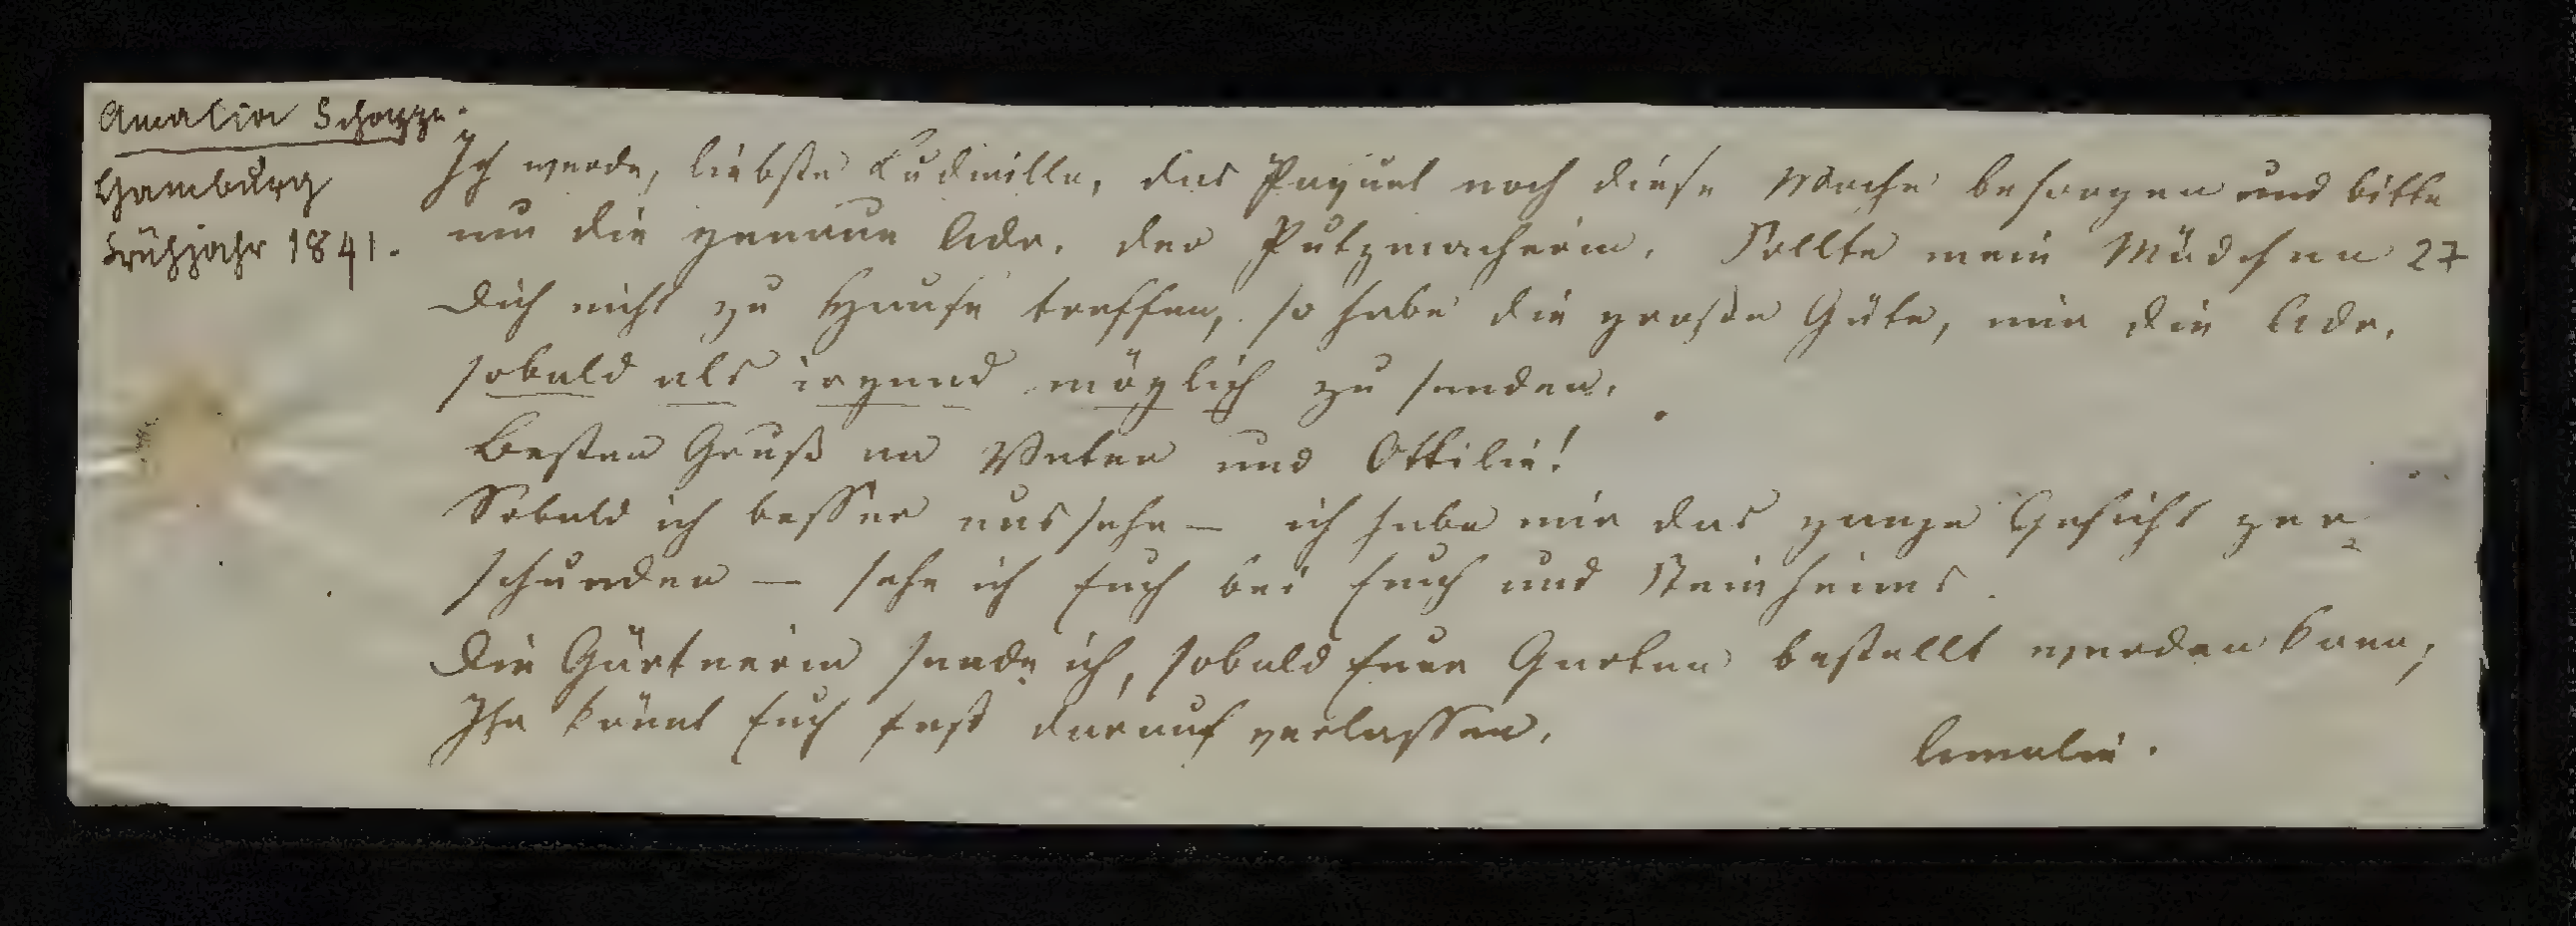 Amalia Schoppe.
Hamburg
Frühjahr 1841.
Ich werde, liebste Ludmilla, das Paquet noch diese Woche besorgen und bitte
um die genaue Adr. der Putzmacherin. Sollte mein Mädchen
Dich nicht zu Hause treffen, so habe die große Güte, mir die Adr.
sobald als irgend möglich zu senden.
Besten Gruß an Vater und Ottilie!
Sobald ich besser aussehe – ich habe mir das ganze Gesicht zer-
schunden – sehe ich Euch bei Euch und Steinheims.
Die Gärtnerin sende ich, sobald Euer Garten bestellt werden kann;
Ihr könnt Euch fest darauf verlassen.
Amalie.